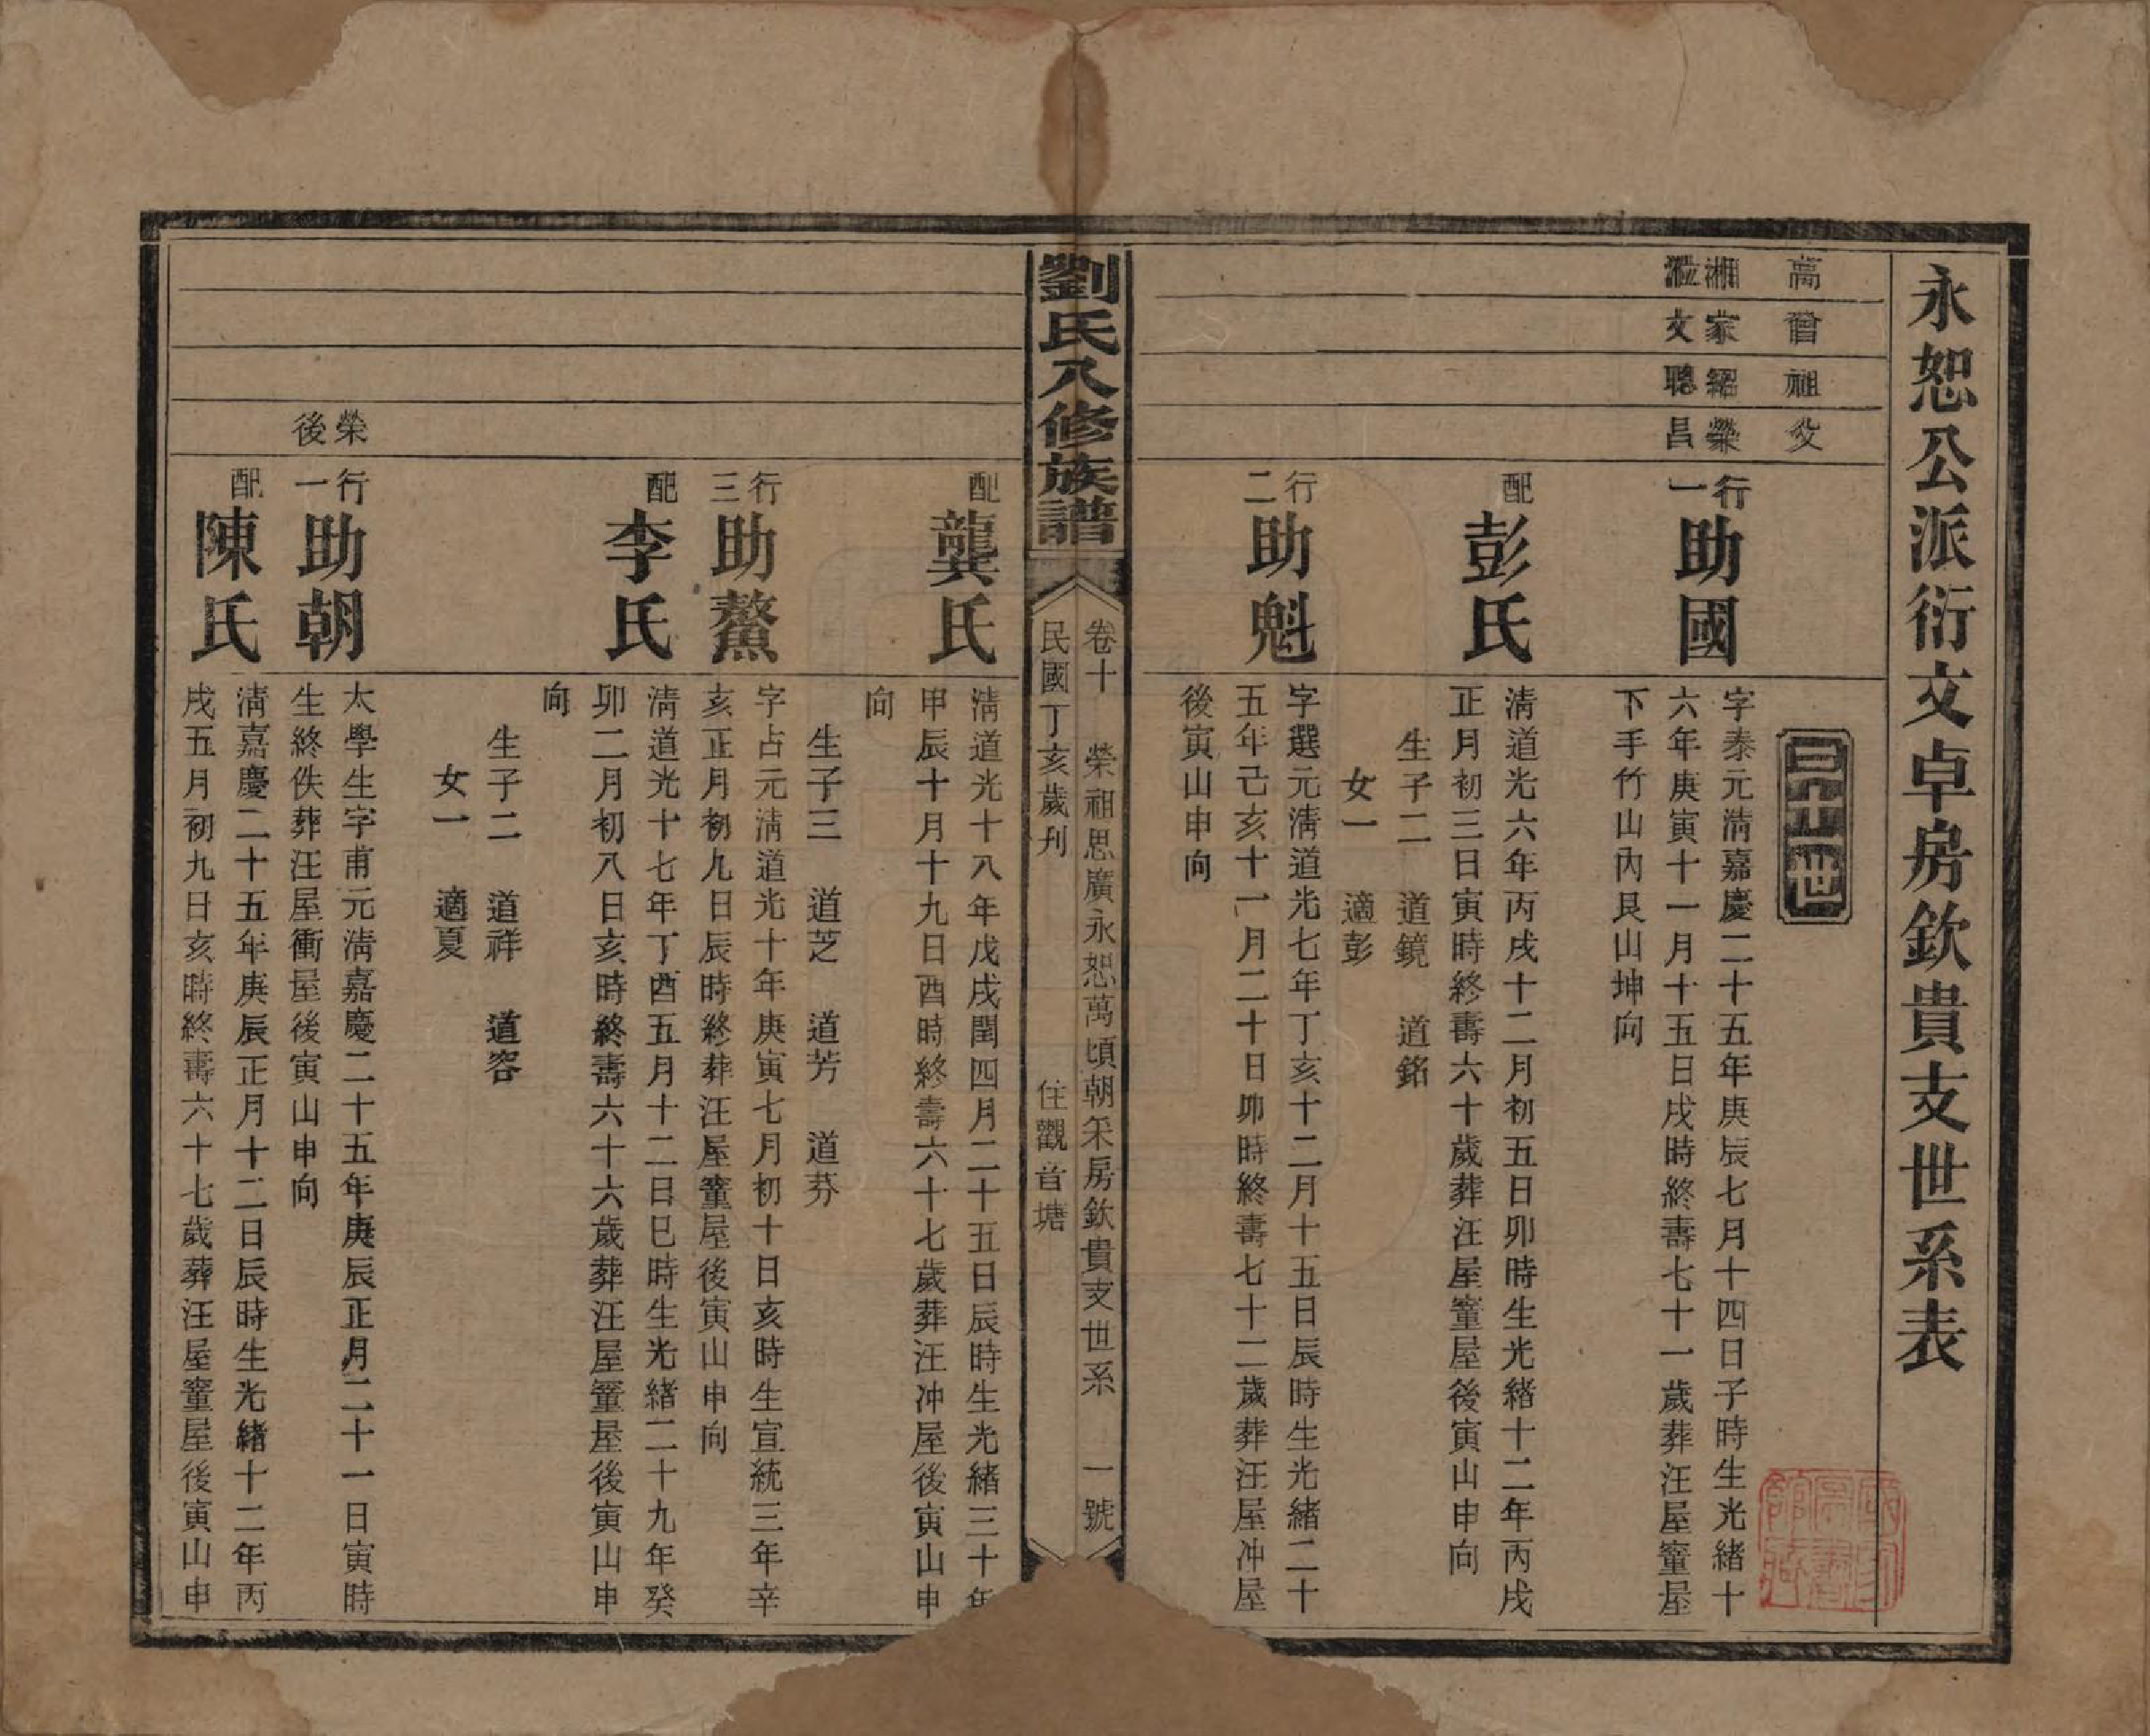 永恕公派衍文卓房欽貴支世系表
三十一世
高 曾 祖 父
湘 家 紹 榮
文 聰 昌
行一
助國
字泰元淸嘉慶二十五年庚辰七月十四日子時生光緒十
六年庚寅十一月十五日戌時終壽七十一歲葬汪屋窰屋
下手竹山內艮山坤向
配
彭氏
淸道光六年丙戌十二月初五日卯時生光緒十二年丙戌
正月初三日寅時終壽六十歲葬汪屋窰屋後寅山申向
生子二 道鏡 道銘
女一 適彭
行二
助魁
字選元淸道光七年丁亥十二月十五日辰時生光緒二十
五年己亥十一月二十日卯時終壽七十二歲葬汪屋冲屋
後寅山申向
劉氏八修族譜
卷十 榮祖思廣永恕萬頃朝采房欽貴支世系 一號
民國丁亥歲刋 住觀音塘
配
龔氏
淸道光十八年戊戌閏四月二十五日辰時生光緒三十年
甲辰十月十九日酉時終壽六十七歲葬汪冲屋後寅山申
向
生子三 道芝 道芳 道芬
行三
助鰲
字占元淸道光十年庚寅七月初十日亥時生宣統三年辛
亥正月初九日辰時終葬汪屋窰屋後寅山申向
配
李氏
淸道光十七年丁酉五月十二日巳時生光緒二十九年癸
卯二月初八日亥時終壽六十六歲葬汪屋窰屋後寅山申
向
生子二 道祥 道容
女一 適夏
榮後
行一
助朝
太學生字甫元淸嘉慶二十五年庚辰正月二十一日寅時
生終佚葬汪屋衝屋後寅山申向
配
陳氏
淸嘉慶二十五年庚辰正月十二日辰時生光緒十二年丙
戌五月初九日亥時終壽六十七歲葬汪屋窰屋後寅山申